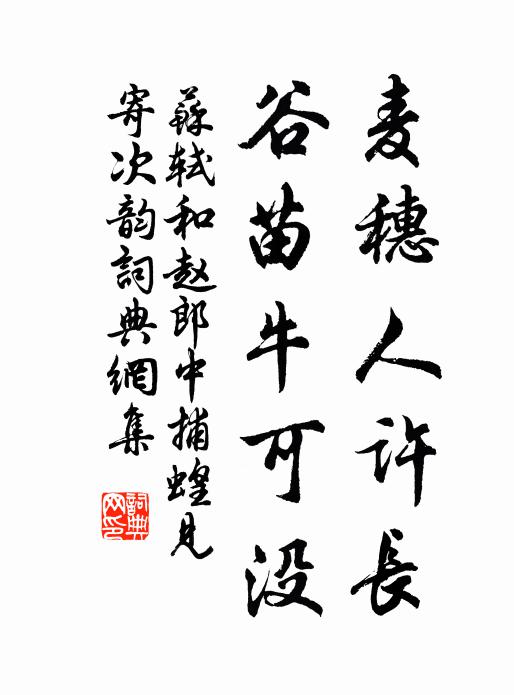 麦穗人许長
谷苗牛可没
蘇轼和赵郎中捕蝗見
寄次韵詞典網集
詞典网印